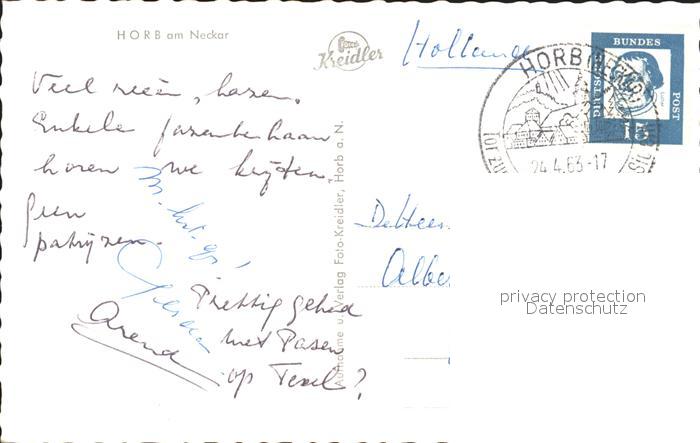 HORB am Neckar
Foto
Kreidler
Holland
BUNDES
POST
15
HORB
24.4.63-17
Veel reeën, hazen.
Enkele fazantenhaan
horen we
Geen
patrijzen.
Prettig gehad
met Pasen
op Texel?
Arend
De Heer
Albe
Aufnahme u. Verlag Foto-Kreidler, Horb a. N.
privacy protection
Datenschutz